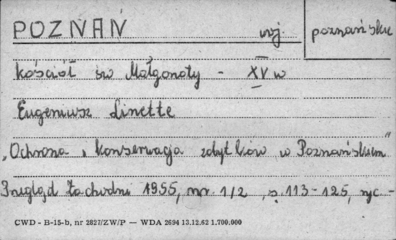 POZNAŃ woj. poznańskie
kościół św Małgorzaty - XV w
Eugeniusz Linette
„Ochrona i konserwacja zabytków w Poznańskiem"
Przegląd Zachodni 1955, nr. 1/2, s. 113-125, ryc -
CWD - B-15-b, nr 2827/ZW/P — WDA 2694 13.12.62 1.700.000